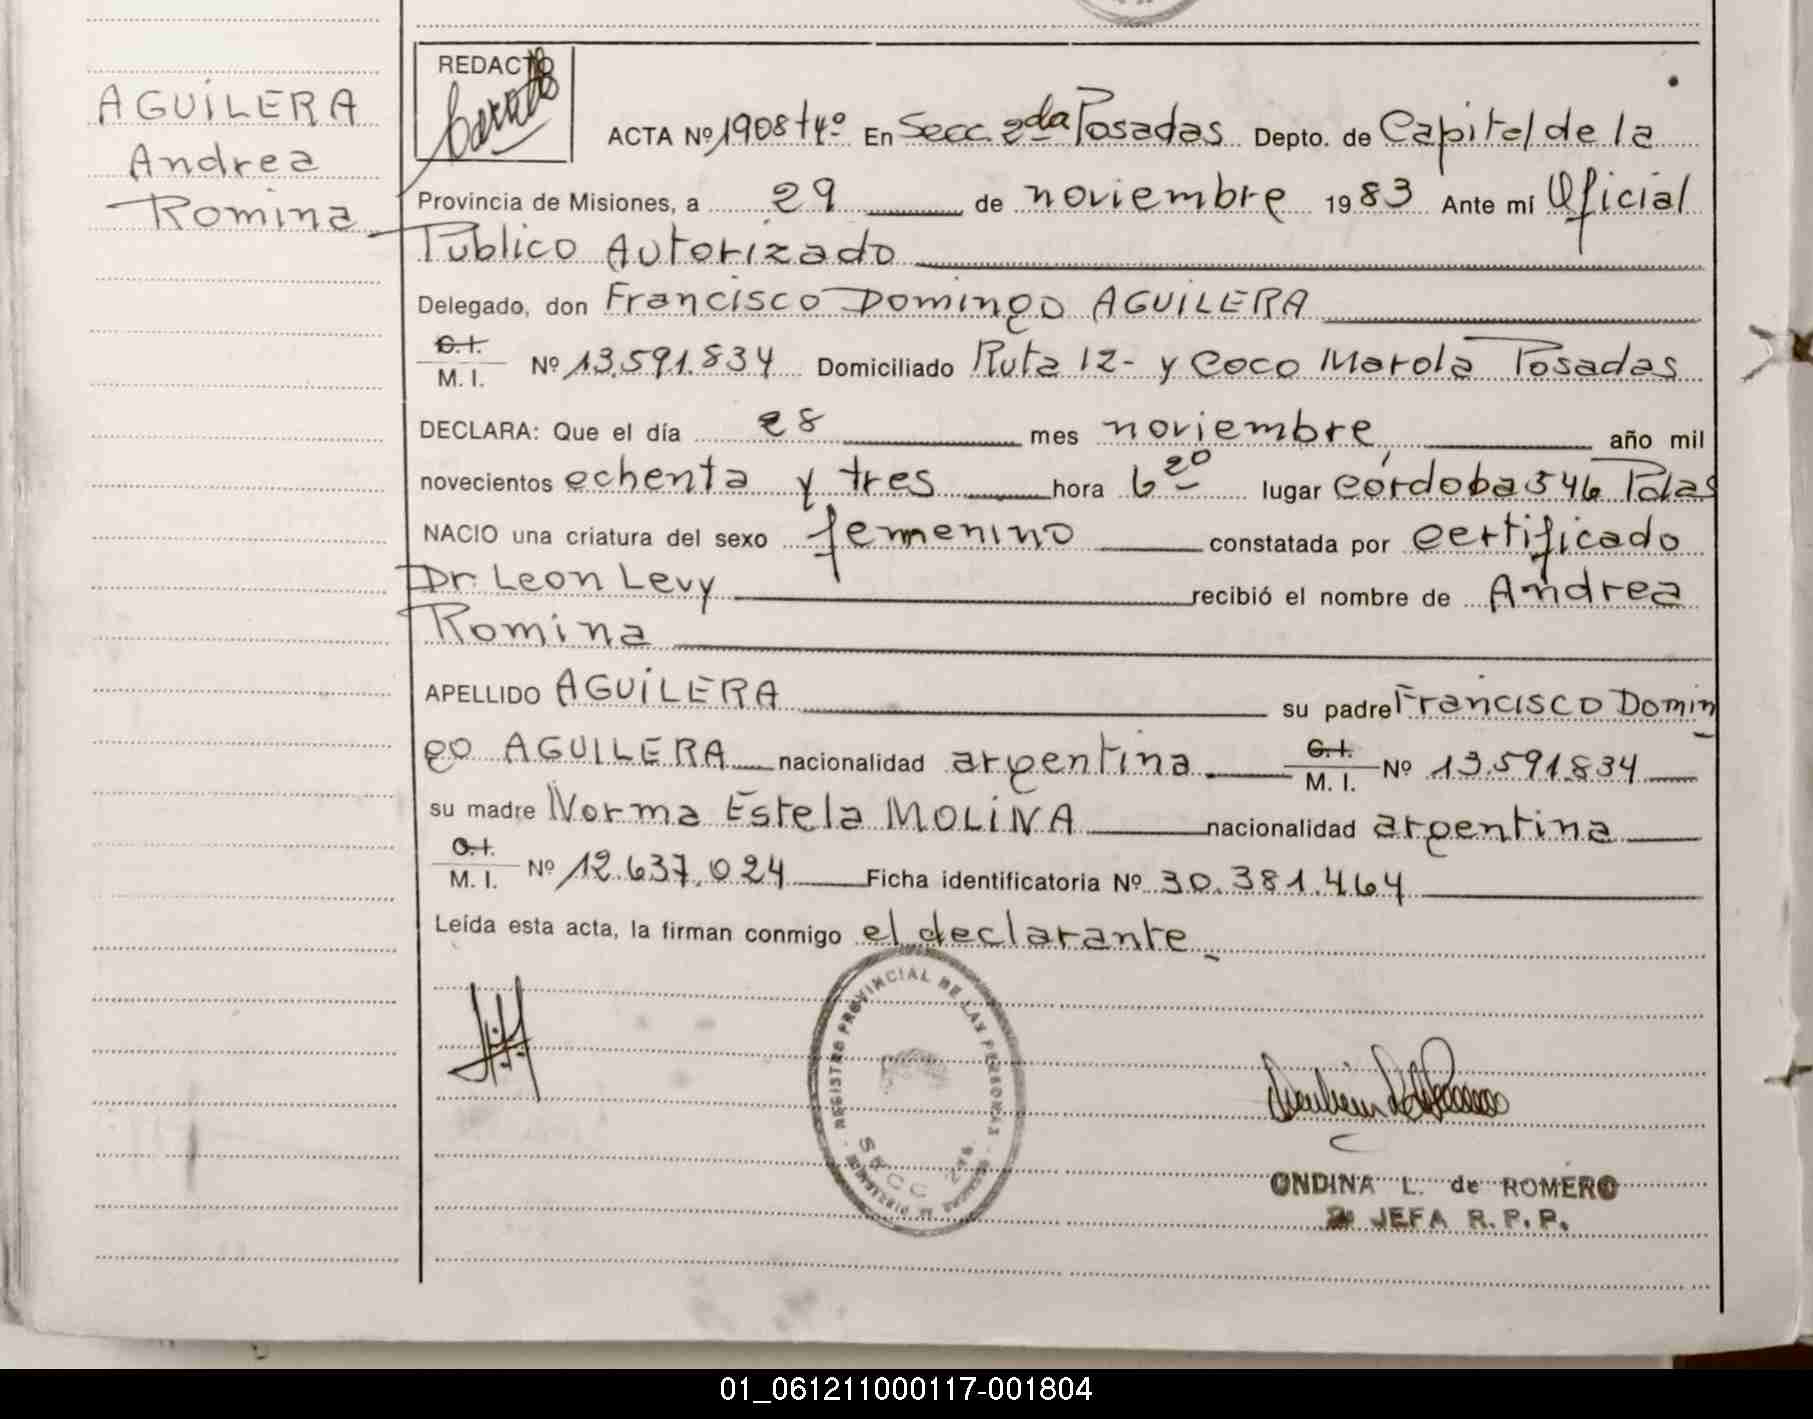 AGUILERA
Andrea
Romina
REDACTO
ACTA Nº 1908 tº 4º En Secc. 2da Posadas Depto. de Capital de la
Provincia de Misiones, a 29 de noviembre 1983 Ante mí Oficial
Publico Autorizado
Delegado, don Francisco Domingo AGUILERA
C.I.
M. I. Nº 13.591.834 Domiciliado Ruta 12- y Coco Marola Posadas
DECLARA: Que el día 28 mes noviembre, año mil
novecientos ochenta y tres hora 6 20 lugar Córdoba 546 Pdas
NACIO una criatura del sexo femenino constatada por certificado
Dr. Leon Levy recibió el nombre de Andrea
Romina
APELLIDO AGUILERA su padre Francisco Domin
go AGUILERA nacionalidad argentina C.I. M. I. Nº 13.591.834
su madre Norma Estela MOLINA nacionalidad argentina
C.I.
M. I. Nº 12.637.024 Ficha identificatoria Nº 30.381.464
Leída esta acta, la firman conmigo el declarante.
REGISTRO PROVINCIAL DE LAS PERSONAS
SECC 2da
ONDINA L. de ROMERO
JEFA R. P. P.
01_061211000117-001804